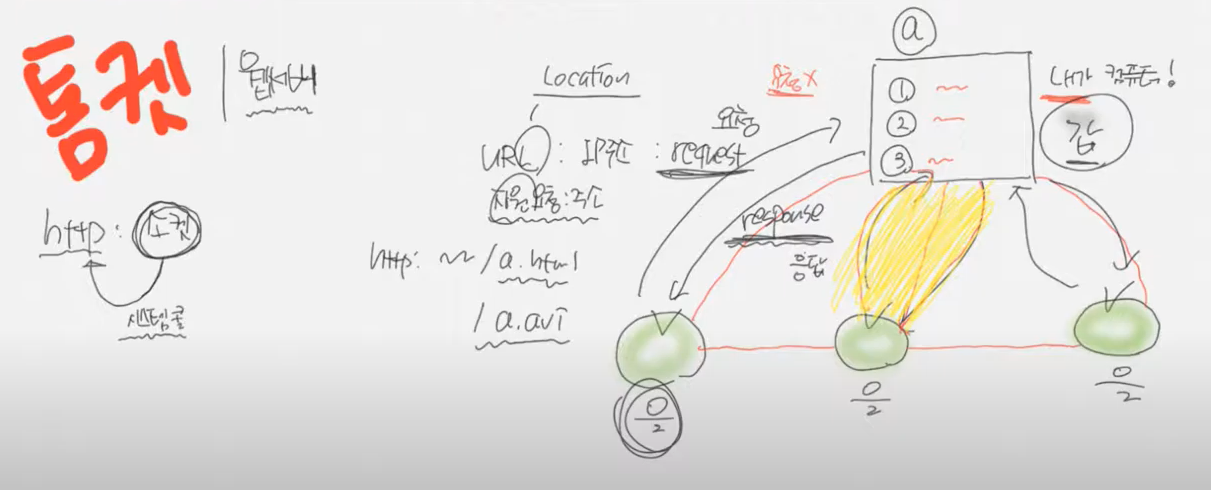 톰켓
웹서버
http: 소켓
시스템콜
Location
URL : IP주소 : request
자원요청:주소
http: ~ /a.html
/a.avi
요청X
요청
response
응답
a
1
2
3
내가 컴퓨터!
갑
0/2
0/2
0/2